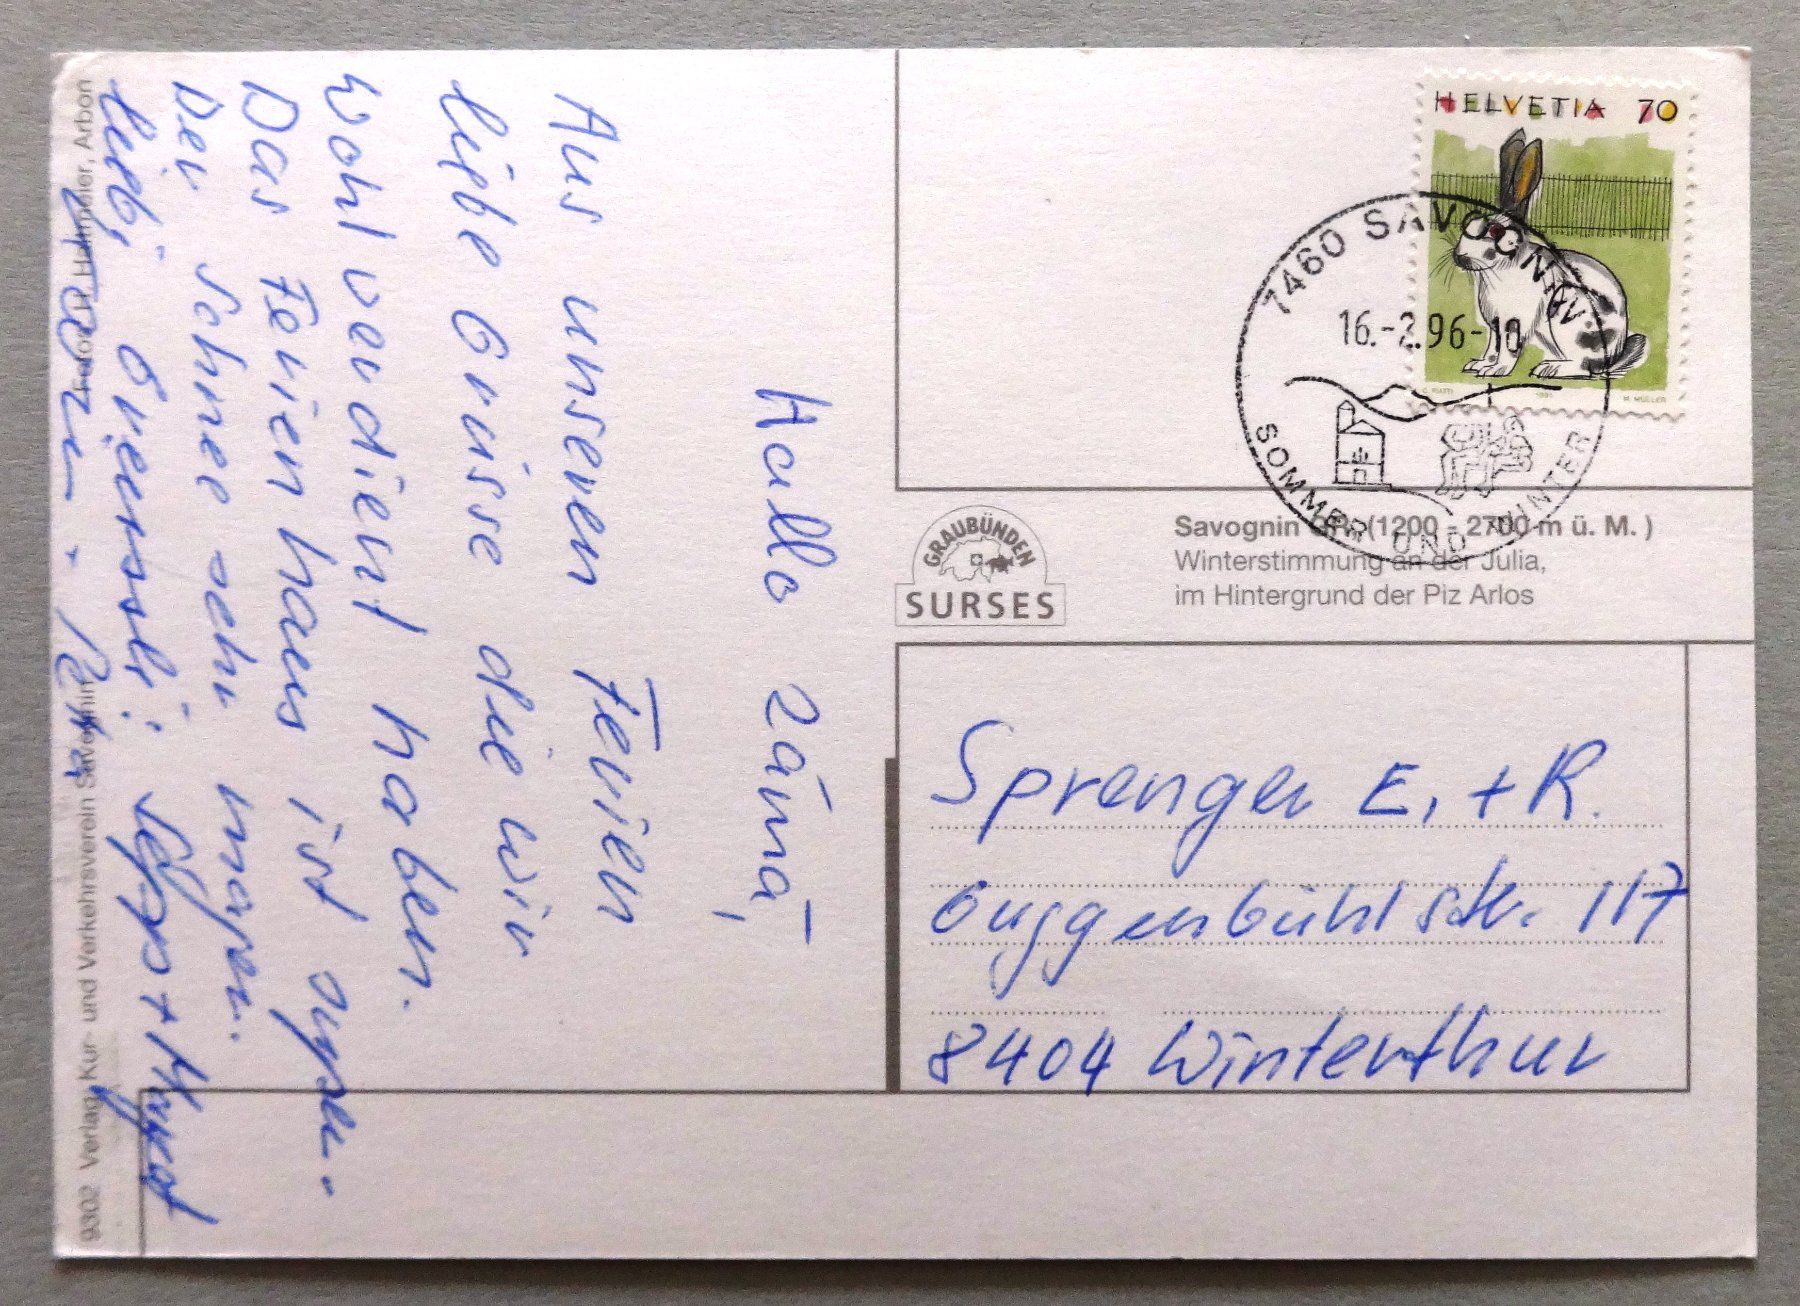 Hallo zämä,
Aus unseren Ferien
liebe Grüsse die wir
wohl verdient haben.
Das Ferienhaus ist super.
Der Schnee sehr mager.
liebi Grüessli: Sepp + Margrot
HELVETIA 70
7460 SAVOGNIN
16.-2.96-10
SOMMER UND WINTER
C. PIATTI 1991 M. MÜLLER
GRAUBÜNDEN
SURSES
Savognin GR (1200 - 2700 m ü. M. )
Winterstimmung an der Julia,
im Hintergrund der Piz Arlos
Sprenger E. + R.
Guggenbühlstr. 117
8404 Winterthur
9302 Verlag Kur- und Verkehrsverein Savognin
Foto: H. Hallmeier, Arbon